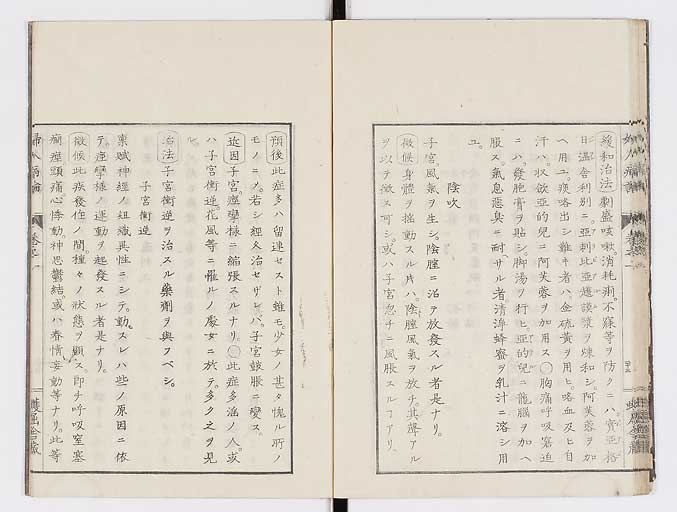 緩和治法 劇盛咳嗽消耗痢。不寐等ヲ防クニハ。實亞格
日温舎利別ニ。亞刺比亞
ヘ用ユ。痰咯出シ難キ者ハ。金硫黄ヲ用ヒ。咯血及ヒ自
汗ハ。収歛亞的兒ニ阿芙蓉ヲ加用ス〇胸痛呼吸窘迫
ニハ。發胞膏ヲ貼シ。脚湯ヲ行ヒ。亞的兒ニ龍腦ヲ加ヘ
服ス。氣息惡臭ニ耐ヘサル者ハ。清淨蜂蜜ヲ乳汁ニ溶シ用
ユ。
陰吹
子宮。風氣ヲ生シ。陰腟ニ沿テ放發スル者是ナリ。
徴候 身體ヲ揺動スル片ハ。陰腟風氣ヲ放チ。其聲アル
ヲ以テ徴ス可シ。或ハ子宮忽チニ風脹スルコアリ。
預後 此症多ハ留連セスト雖モ。少女ノ甚タ愧ル所ノ
モノニノ。若シ經久治セザレバ。子宮鼓脹ニ變ス。
近因 子宮。痙攣様ニ縮張スルナリ。〇此症多淫ノ人。或
ハ子宮衝逆。花風等ニ罹ルノ處女ニ於テ。多ク之ヲ見
ル。
治法 子宮衝逆ヲ治スル藥劑ヲ與フベシ。
子宮衝逆
稟賦神經ノ組織異性ニシテ。動スレハ些ノ原因ニ依
テ。痙攣様ノ運動ヲ起發スル者是ナリ。
徴候 此疾發作ノ間。種々ノ状態ヲ顯ス。即チ呼吸窒塞
癇痙頭痛心悸動。神思鬱結。或ハ春情妄動等ナリ。此等